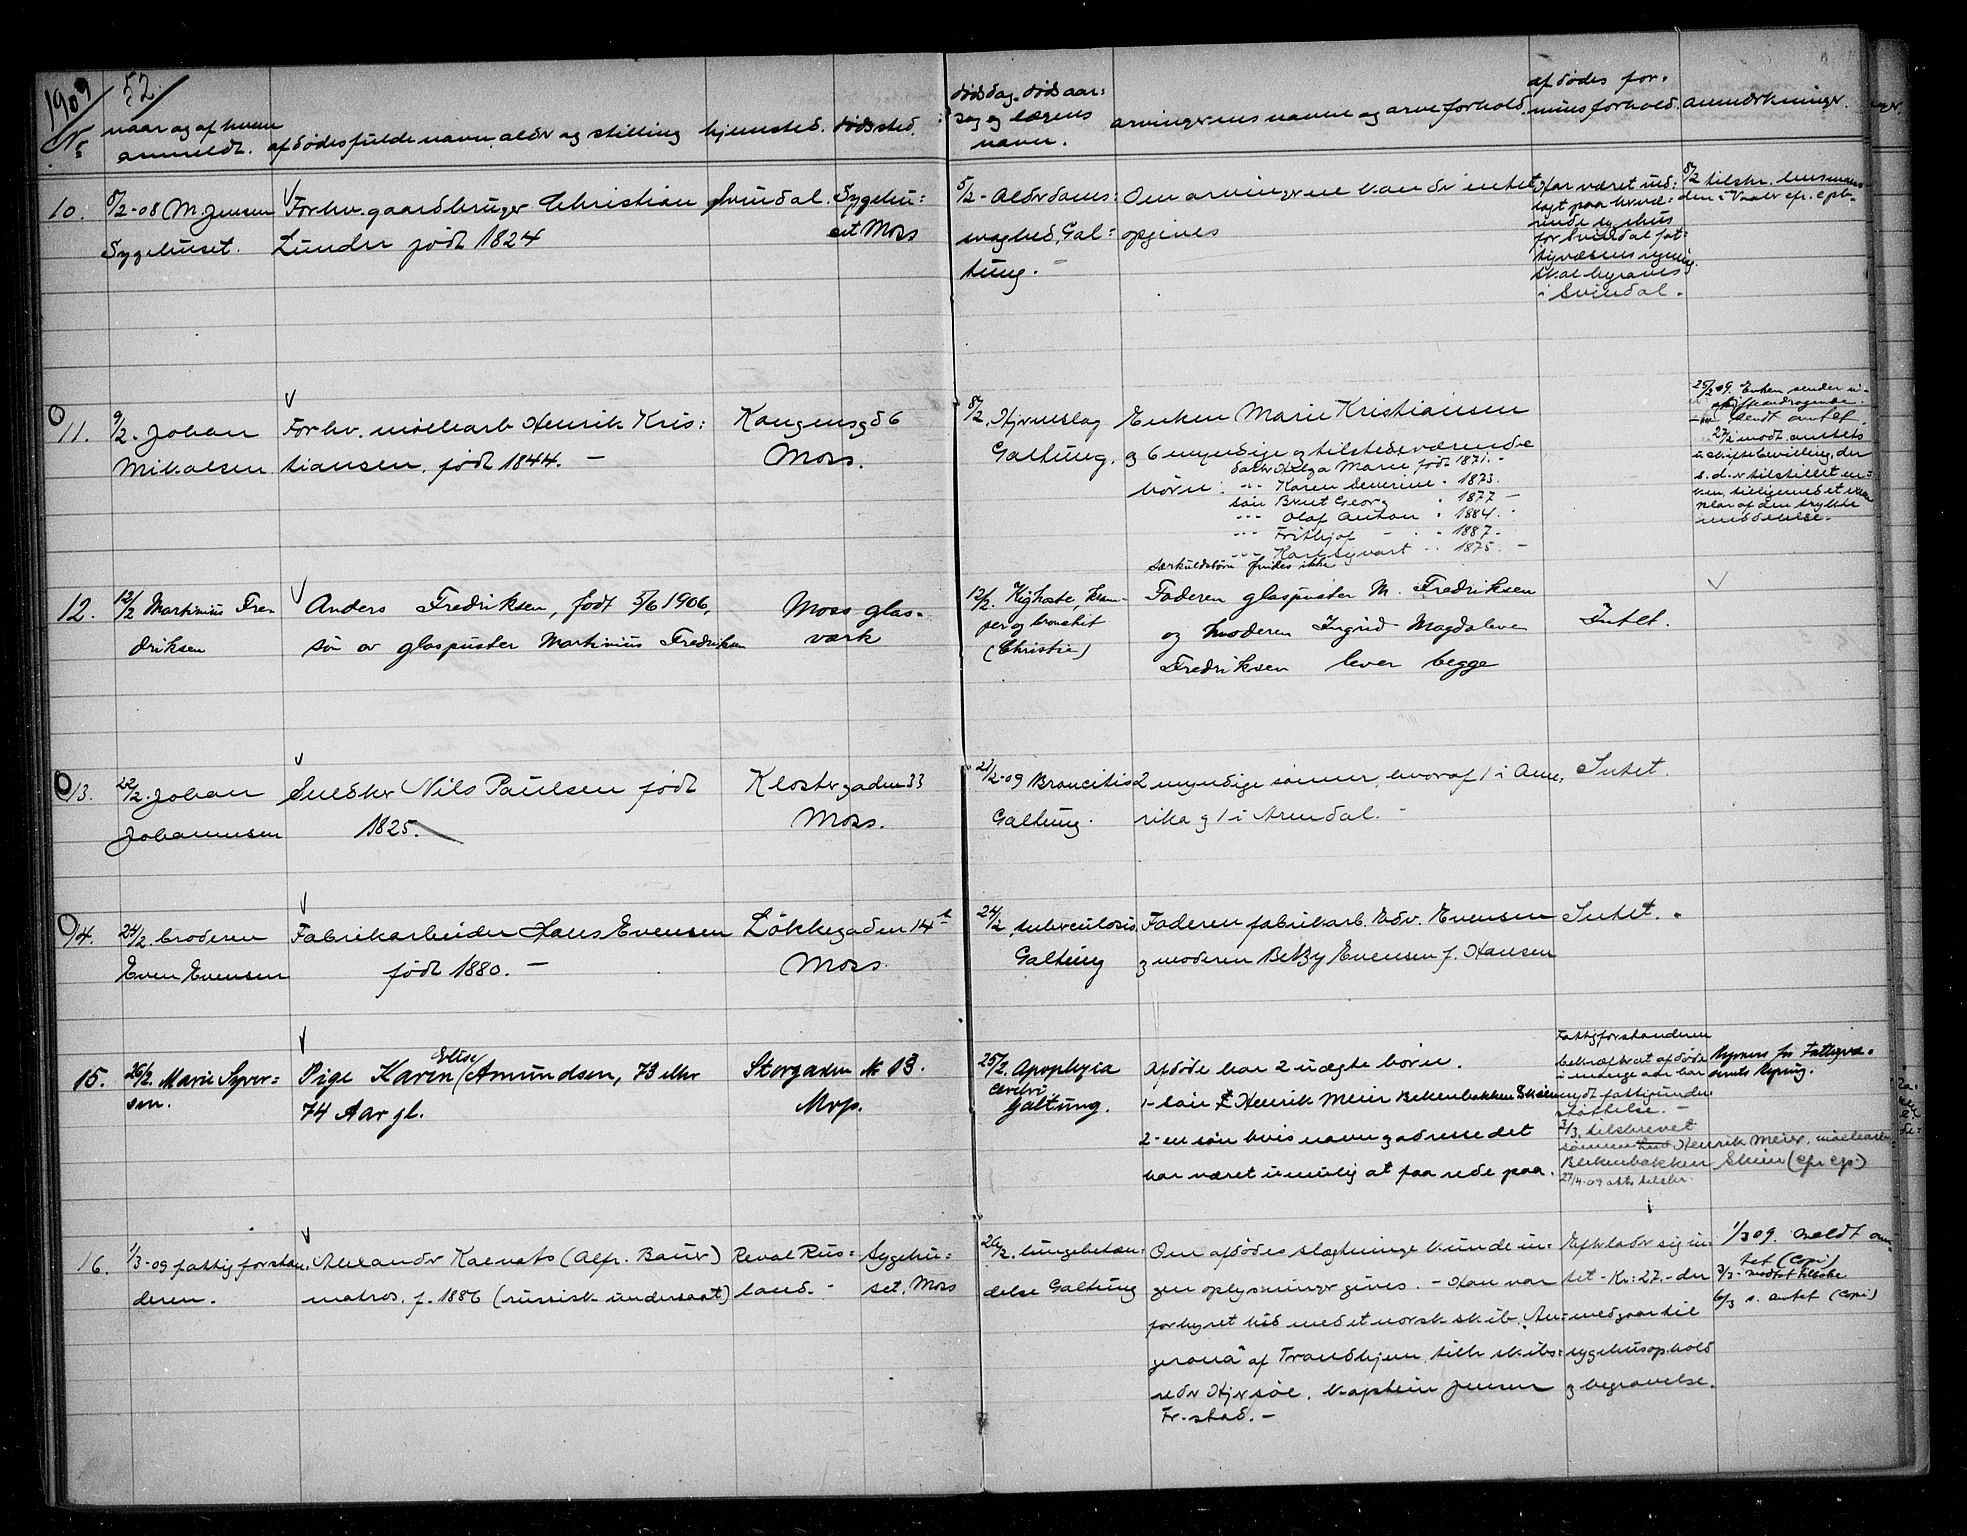 1909
52.
No
naar og af hvem
anmeldt.
afdødes fulde navn, alder og stilling
hjemsted.
dødssted.
dødsdag, dødsaar:
sag og lægens
navn.
arvingernes navne og arveforhold.
afdødes for:
muesforhold.
anmærkninger.
10.
8/2-08 M. Jensen
Sygehuset.
Forhv. gaardbruger Christian
Lunder født 1824
Svindal.
Sygehu:
set Moss
5/2 - Alderdoms:
svaghed, Gal:
tung. -
Om arvingerne kande intet
opgives
Har været ind:
lagt paa hervæ:
rende sygehus
for Svindal fat:
tigvæsens regning.
skal begraves
i Svindal.
8/2 tilskr. lensman:
den i Vaaler cfr. cpb.
11.
9/2. Johan
Mikalsen
Forhv. møllearb Henrik Kris:
tiansen, født 1844. -
Kongensgd 6
Moss.
8/2. Hjerneslag
Galtung.
Enken Marie Kristiansen
og 6 myndige og tilstedeværende
børn:
datter Helga Marie født 1871. -
-"- Karen Severine " 1873.
søn Bernt Georg " 1877 -
-"- Olaf Anton " 1884.
-"- Frithjof - " 1887.
-"- Karl Sigvart " 1875. -
Særkuldsbørn findes ikke
25/2 09. Enken sender u-
skifteandragende.
sendt amtet.
27/2 modt. amtets
uskiftebevilling, der
s. d. er tilstillet en:
ken, tilligemed et exem
plar af den trykte
meddelelse.
12.
12/2 Martinius Fre-
driksen
Anders Fredriksen, født 5/6 1906,
søn av glaspuster Martinius Fredriksen
Moss glas-
værk
12/2. Kighoste, kram-
per og bronchit
(Christie)
Faderen glaspuster M. Fredriksen
og moderen Ingrid Magdalene
Fredriksen lever begge
Intet.
13.
22/2. Johan
Johannesen
Snedker Nils Paulsen født
1825.
Klostergaden 33
Moss.
21/2-09 Broncitis
Galtung.
2 myndige sønner, hvoraf 1 i Ame,
rika og 1 i Arendal. -
Intet.
14.
24/2. broderen
Even Evensen
Fabrikarbeider Hans Evensen
født 1880. -
Løkkegaden 14 b
Moss.
24/2. tuberculosis
Galtung
Faderen fabrikarb. Edv. Evensen
og moderen Betzy Evensen f. Hansen
Intet.
15.
26/2. Marie Syver=
sen.
Pige Karen Elise Amundsen, 73 eller
74 Aar gl.
Storgaden No 13.
Moss.
25/2. Apoplexia
cerebri
Galtung.
Afdøde har 2 uægte børn.
1- søn Henrik Meier Bekkenbakken Skien
2- en søn hvis navn og adresse det
har været umulig at faa rede paa.
Fattigforstanderen
bekræfter at afdøde
i mange aar har
nydt fattigunder
støttelse. -
3/3. tilskrevet
sønnen Henrik Meier, møllearb.
Bekkenbakken Skien (cfr cpb)
27/4-09 atter tilskr.
Begraves for Fattigvæ-
senets Regning.
16.
1/3-09 fattigforstan:
deren.
Alexander Kalvats (Alfr. Bauer)
matros, f. 1886 (russisk undersaat)
Reval Rus:
land. -
Sygehu:
set, Moss
26/2. lungebetæn:
delse Galtung
Om afdødes slægtninge kunde in:
gen oplysninger gives. - Han var
forhyret hid med et norsk skib "An:
gerona" af Trondhjem, tilh. skibs:
reder Hjersøe, kaptein Jensen
Fr.stad. -
Efterlader sig in:
tet - Kr: 27.- der
medgaar til
sygehusophold
og begravelse.
1/3 09. meldt am:
tet (Copi)
6/3 s. amtet (copi)